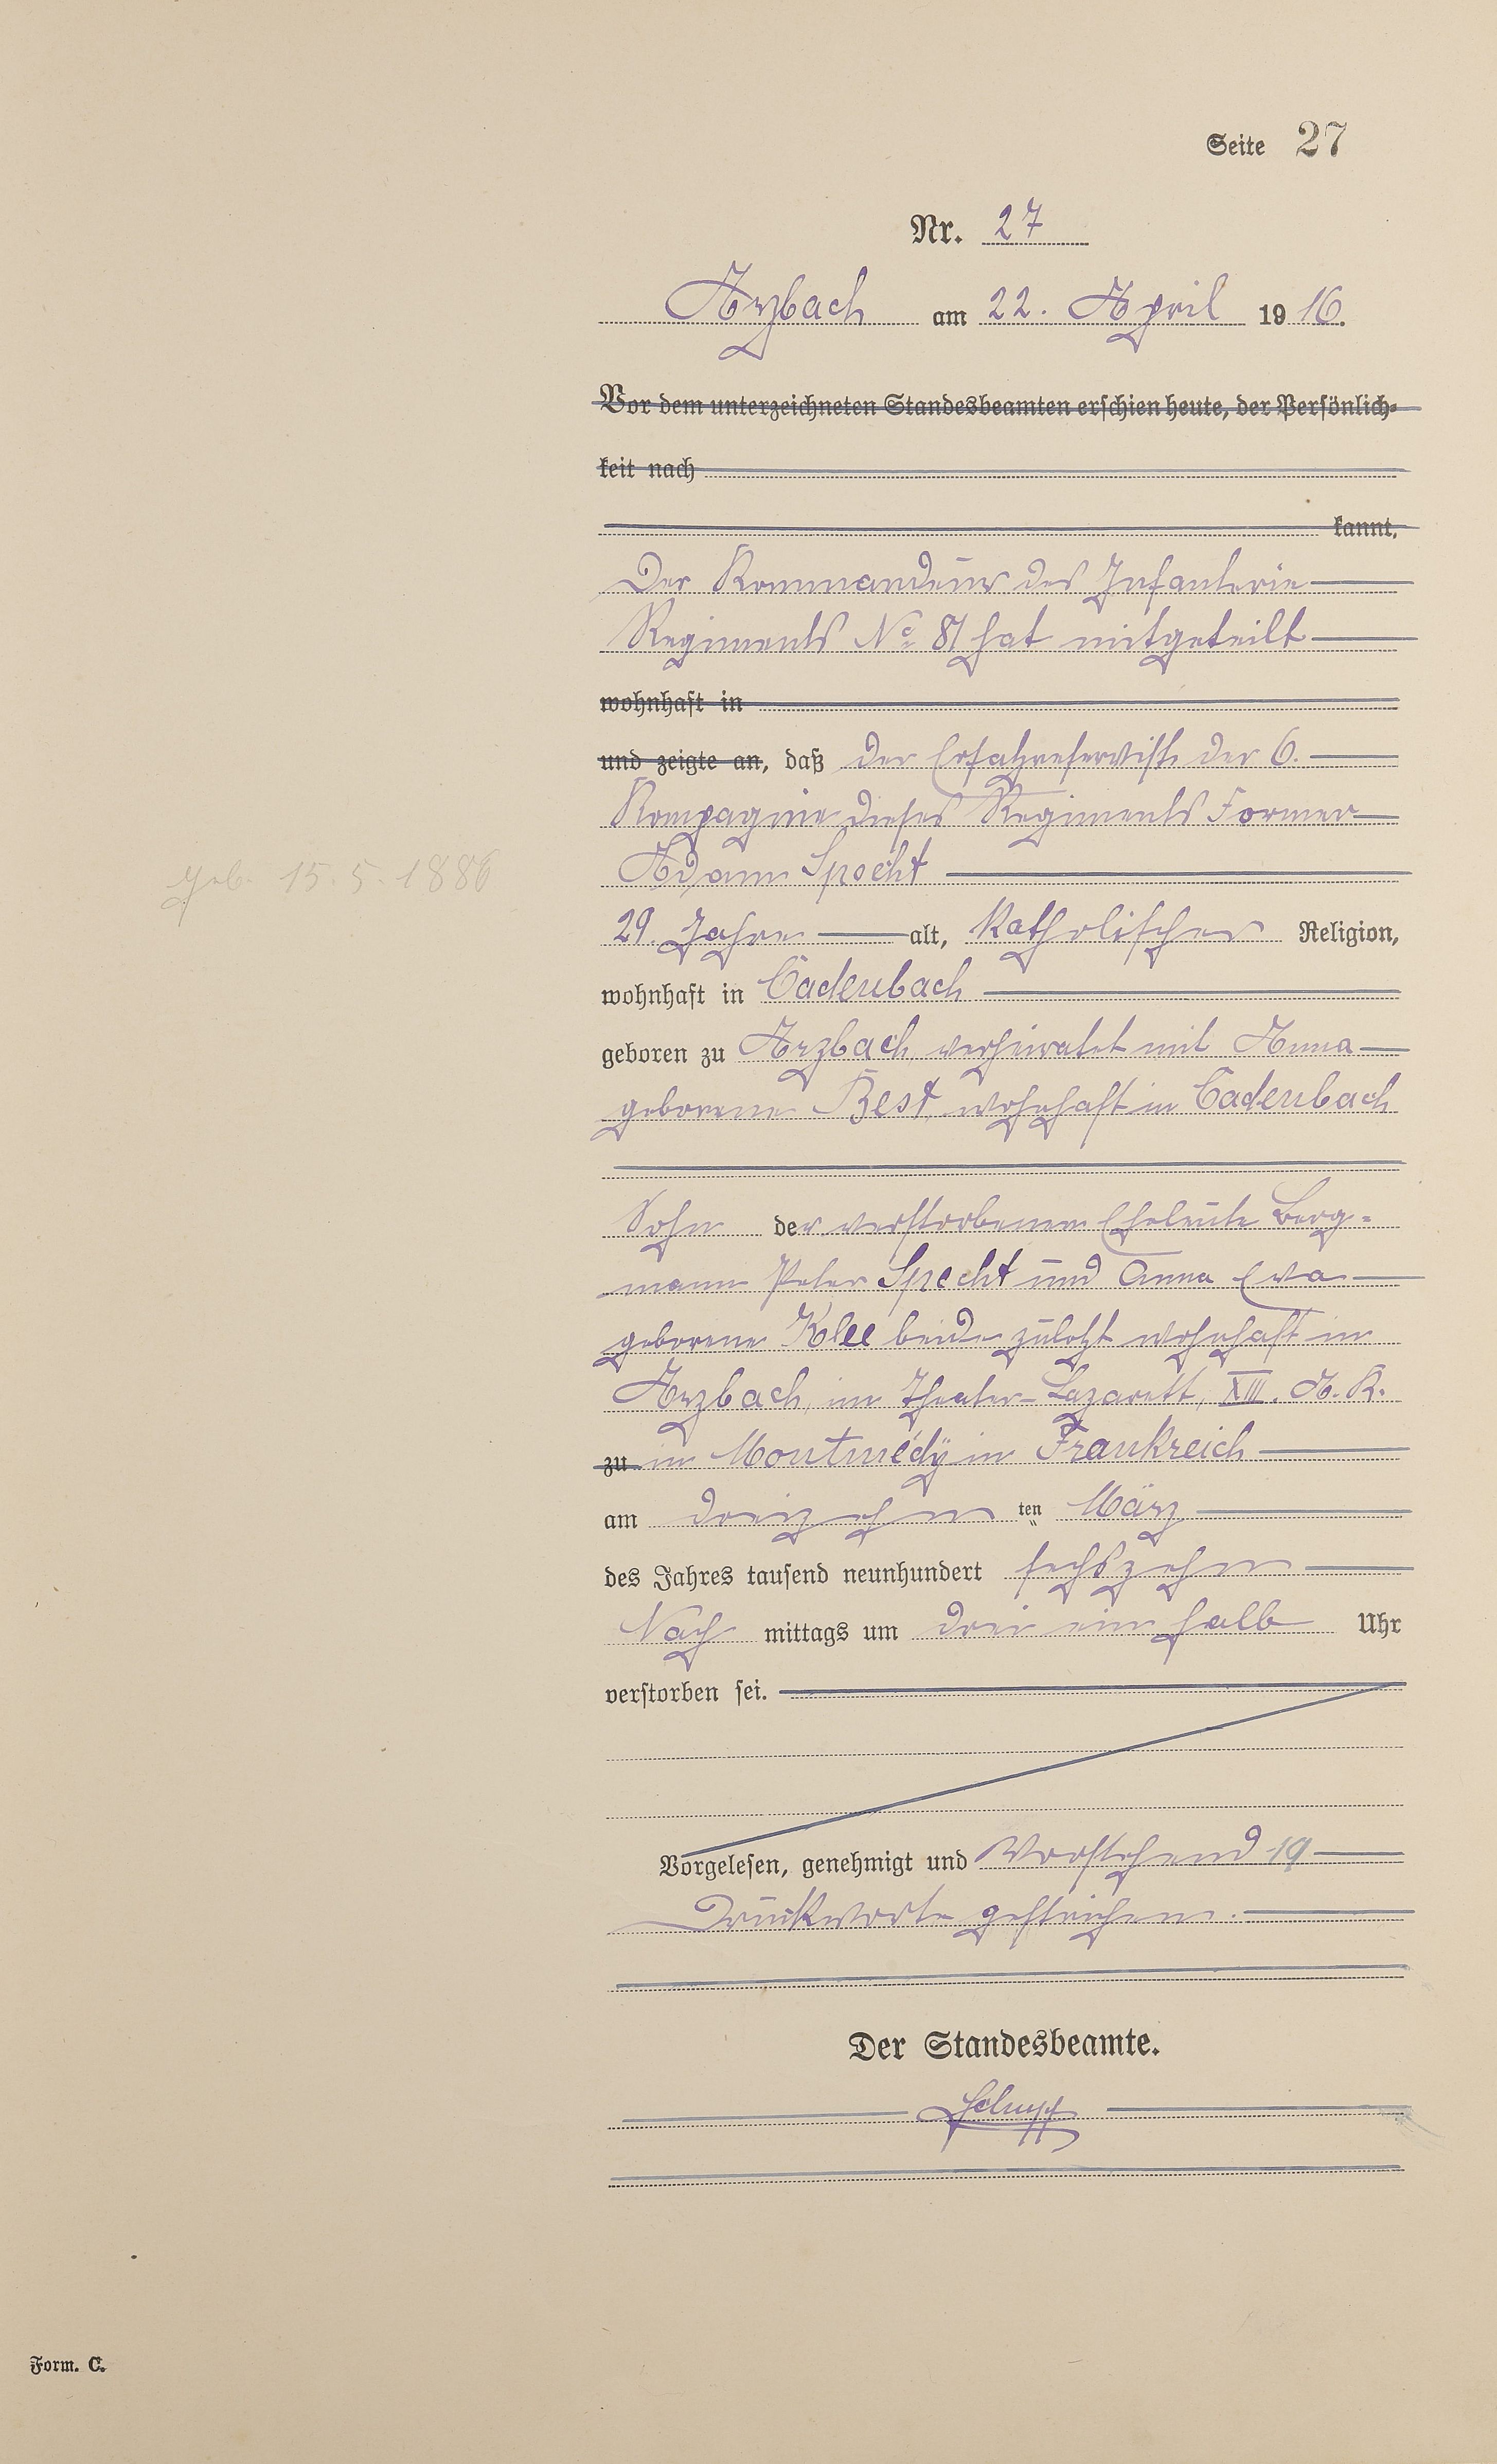 Seite 27
Nr. 27
Arzbach am 22. April 1916.
Vor dem unterzeichneten Standesbeamten erschien heute, der Persönlich-
keit nach
kannt,
Der Kommandeur des Infanterie
Regiments No 81 hat mitgeteilt
wohnhaft in
und zeigte an, daß der Ersatzreservist der 6.
Kompagnie dieses Regiments Former
Adam Specht
geb. 15.5.1886
29 Jahre alt, katholischer Religion,
wohnhaft in Cadenbach
geboren zu Arzbach, verheiratet mit Anna
geborene Best, wohnhaft in Cadenbach
Sohn der verstorbenen Eheleute Berg-
mann Peter Specht und Anna Eva
geborene Klee beide zuletzt wohnhaft in
Arzbach, im Theater-Lazarett, XIII. A. K.
zu in Montmédy in Frankreich
am dreizehn ten März
des Jahres tausend neunhundert sechszehn
Nach mittags um drei ein halb Uhr
verstorben sei.
Vorgelesen, genehmigt und Vorstehend 19
Druckworte gestrichen.
Der Standesbeamte.
Form. C.